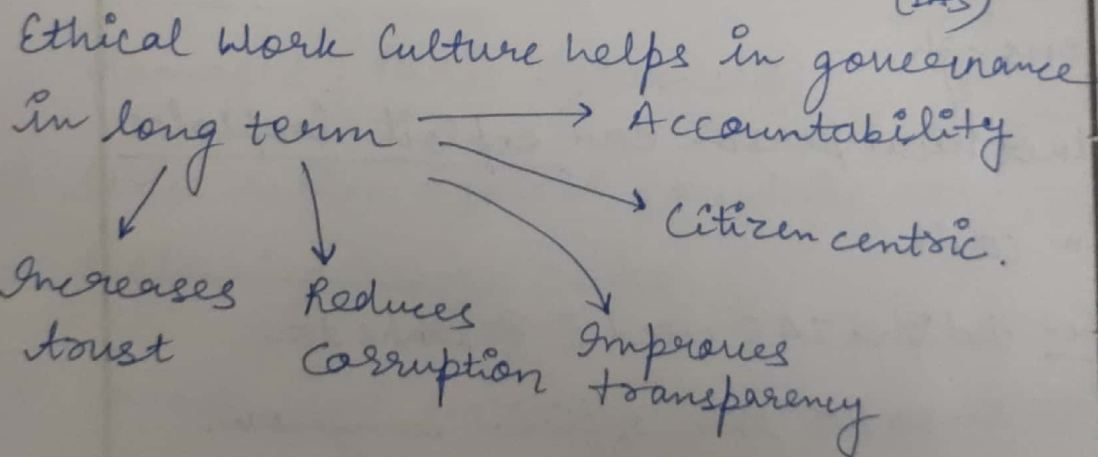 Ethical Work Culture helps in governance
in long term → Accountability
Citizen centric.
Increases
trust
Reduces
Corruption
Improves
transparency